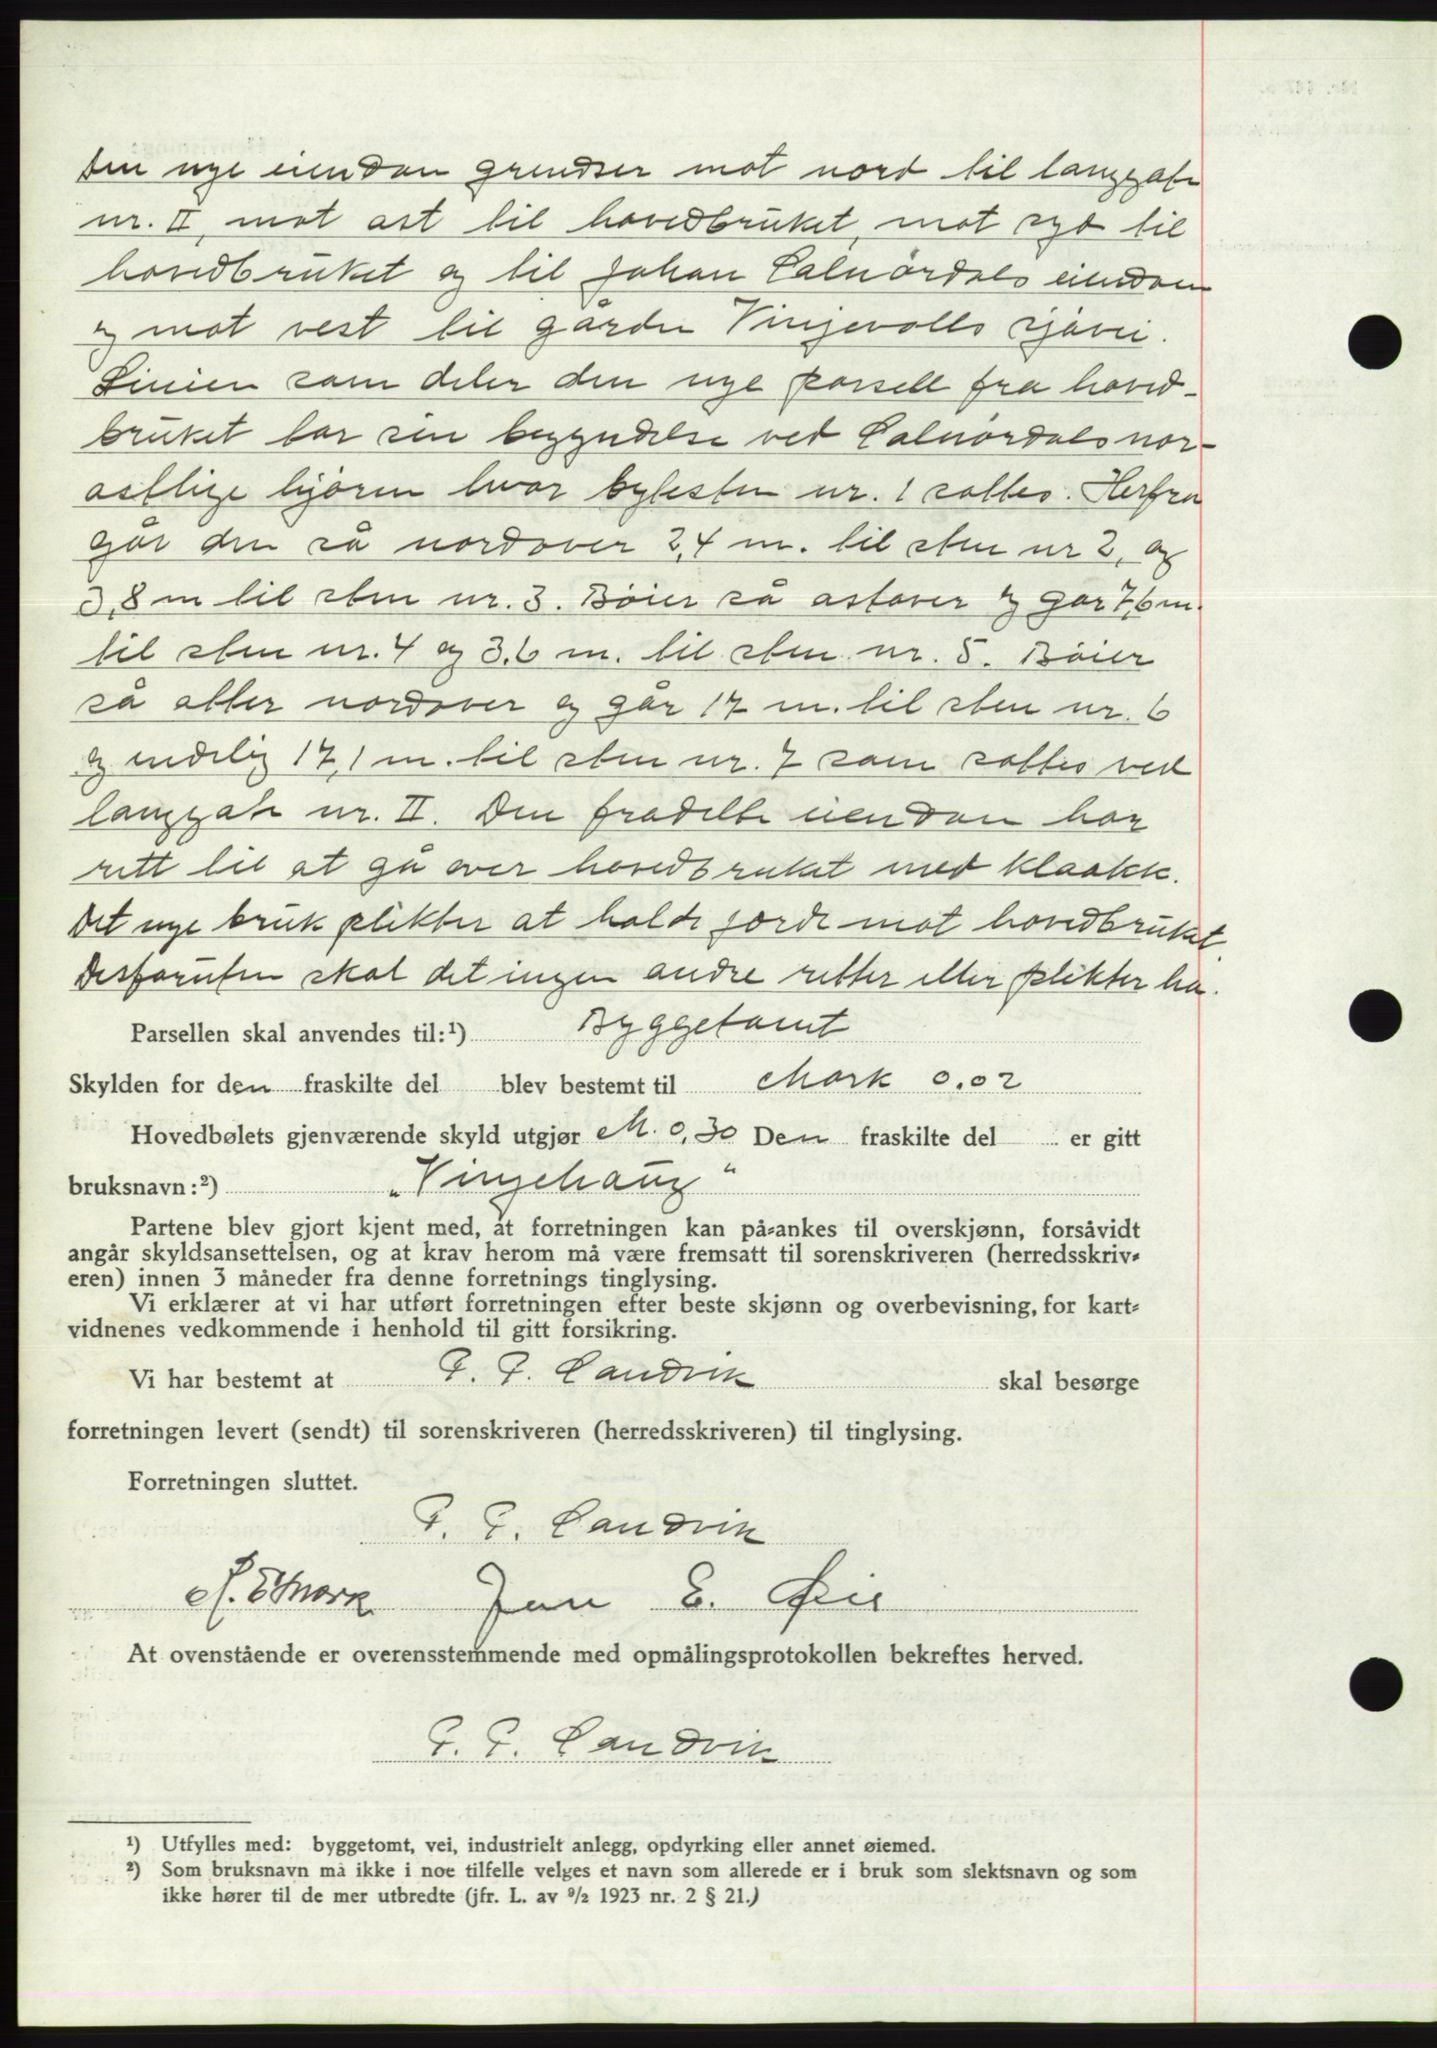 Den nye eiendom grendser mot nord til langgate
nr. II, mot øst til hovedbruket, mot syd til
hovedbruket og til Johan Salnördals eiendom
og mot vest til gården Vinjevolls sjøvei.
Linien som deler den nye parsell fra hoved-
bruket tar sin begyndelse ved Salnördals nor-
østlige hjörne hvor bytesten nr. 1 sattes. Herfra
går den så nordover 2,4 m. til sten nr 2, og
3,8 m til sten nr. 3. Böier så østover og går 7,6 m.
til sten nr. 4 og 3,6 m. til sten nr. 5. Böier
så atter nordover og går 17 m. til sten nr. 6
og endelig 17,1 m. til sten nr. 7 som sattes ved
langgate nr. II. Den fradelte eiendom har
rett til at gå over hovedbruket med kloakk.
Det nye bruk plikter at holde gjerde mot hovedbruket.
Desforuten skal det ingen andre retter eller plikter ha.
Parsellen skal anvendes til:¹) Byggetomt
Skylden for den fraskilte del blev bestemt til Mark 0.02
Hovedbølets gjenværende skyld utgjør M. 0,30 Den fraskilte del er gitt
bruksnavn:²) „Vingehaug“
Partene blev gjort kjent med, at forretningen kan på-ankes til overskjønn, forsåvidt
angår skyldsansettelsen, og at krav herom må være fremsatt til sorenskriveren (herredsskriv-
eren) innen 3 måneder fra denne forretnings tinglysing.
Vi erklærer at vi har utført forretningen efter beste skjønn og overbevisning, for kart-
vidnenes vedkommende i henhold til gitt forsikring.
Vi har bestemt at P. P. Sandvik skal besørge
forretningen levert (sendt) til sorenskriveren (herredsskriveren) til tinglysing.
Forretningen sluttet.
P. P. Sandvik
Jon E. Øie
At ovenstående er overensstemmende med opmålingsprotokollen bekreftes herved.
P. P. Sandvik
¹) Utfylles med: byggetomt, vei, industrielt anlegg, opdyrking eller annet øiemed.
²) Som bruksnavn må ikke i noe tilfelle velges et navn som allerede er i bruk som slektsnavn og som
ikke hører til de mer utbredte (jfr. L. av ⁹/₂ 1923 nr. 2 § 21.)